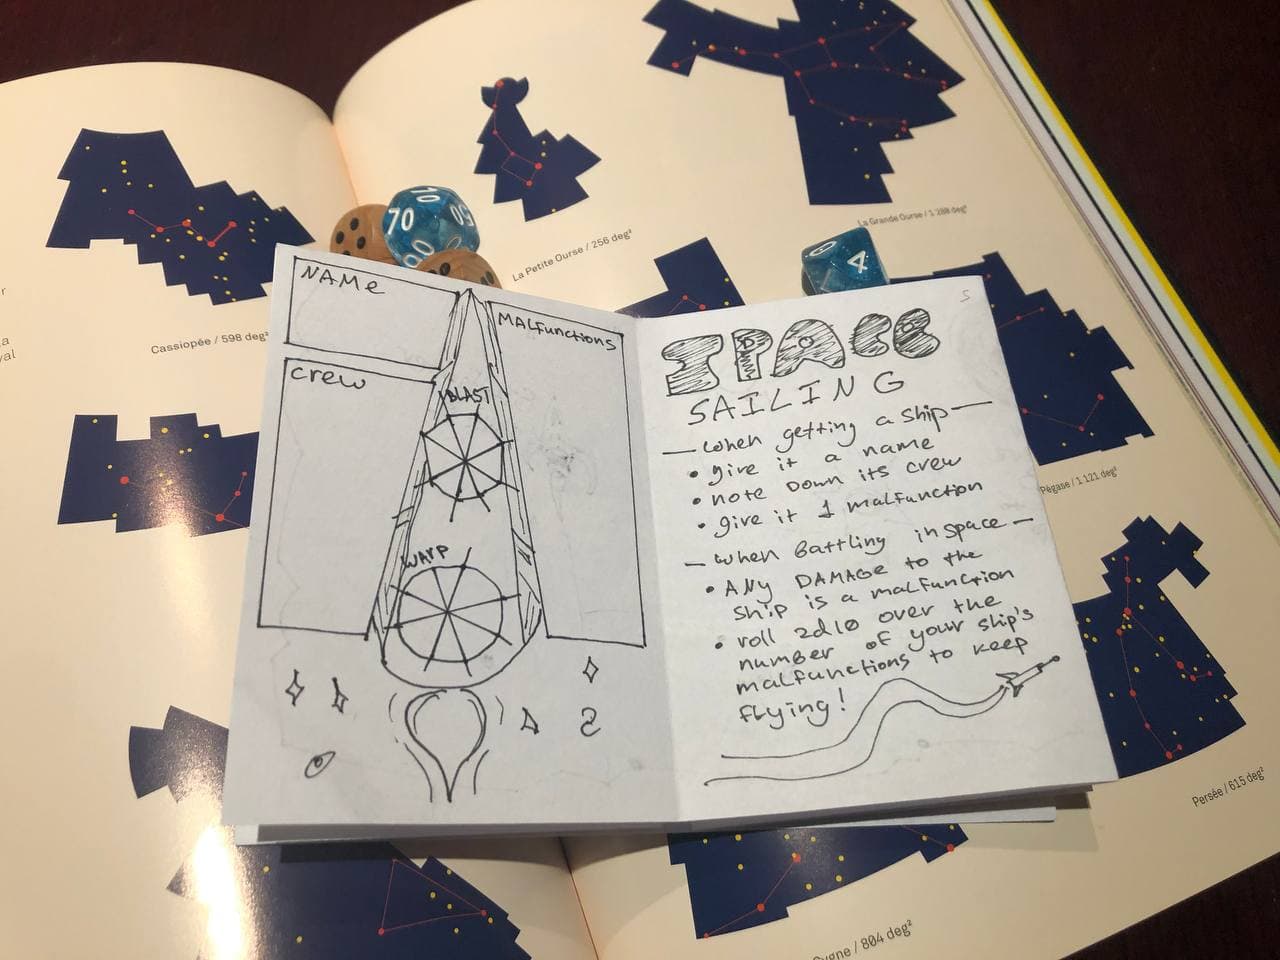 La Grande Ourse / 1 280 deg²
La Petite Ourse / 256 deg²
Cassiopée / 598 deg²
70
10
50
4
NAMe
MALfunctions
crew
BLAST
WARP
5
SPACE
SAILING
— when getting a ship —
• give it a name
• note down its crew
• give it 1 malfunction
— when Battling in space —
• ANY DAMAGE to the
ship is a malfunction
• roll 2d10 over the
number of your ship's
malfunctions to keep
flying!
Pégase / 1 121 deg²
Persée / 615 deg²
Cygne / 804 deg²